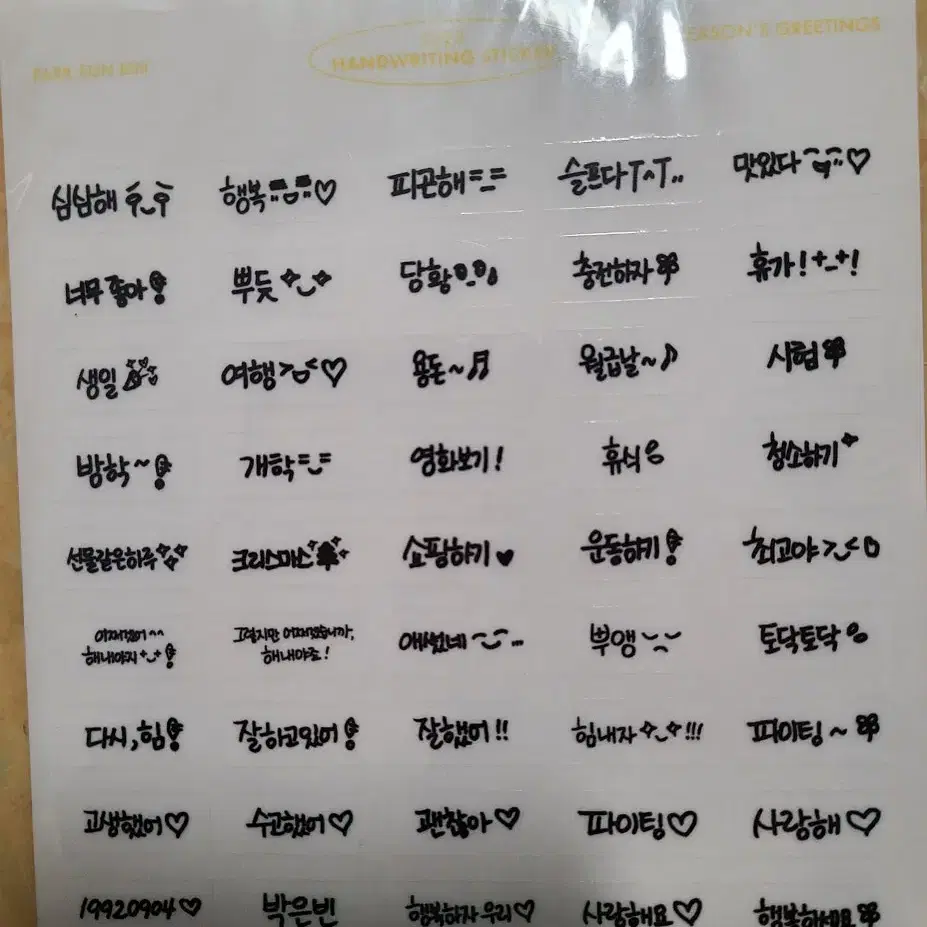 PARK EUN BIN
HANDWRITING STICKER
SEASON'S GREETINGS
심심해
행복 ♡
피곤해 =_=
슬프다 T^T..
맛있다 ♡
너무 좋아
뿌듯
당황
충전하자
휴가! +_+!
생일
여행 ♡
용돈~♬
월급날~♪
시험
방학~
개학
영화보기!
휴식
청소하기
선물같은하루
크리스마스
쇼핑하기 ♥
운동하기
최고야
어쩌겠어^^
해내야지 +_+
그렇지만 어쩌겠습니까,
해내야죠!
애썼네 ...
뿌앵
토닥토닥
다시, 힘
잘하고있어
잘했어!!
힘내자 !!!
파이팅~
고생했어♡
수고했어♡
괜찮아♡
파이팅♡
사랑해♡
19920904♡
박은빈
행복하자 우리♡
사랑해요♡
행복하세요